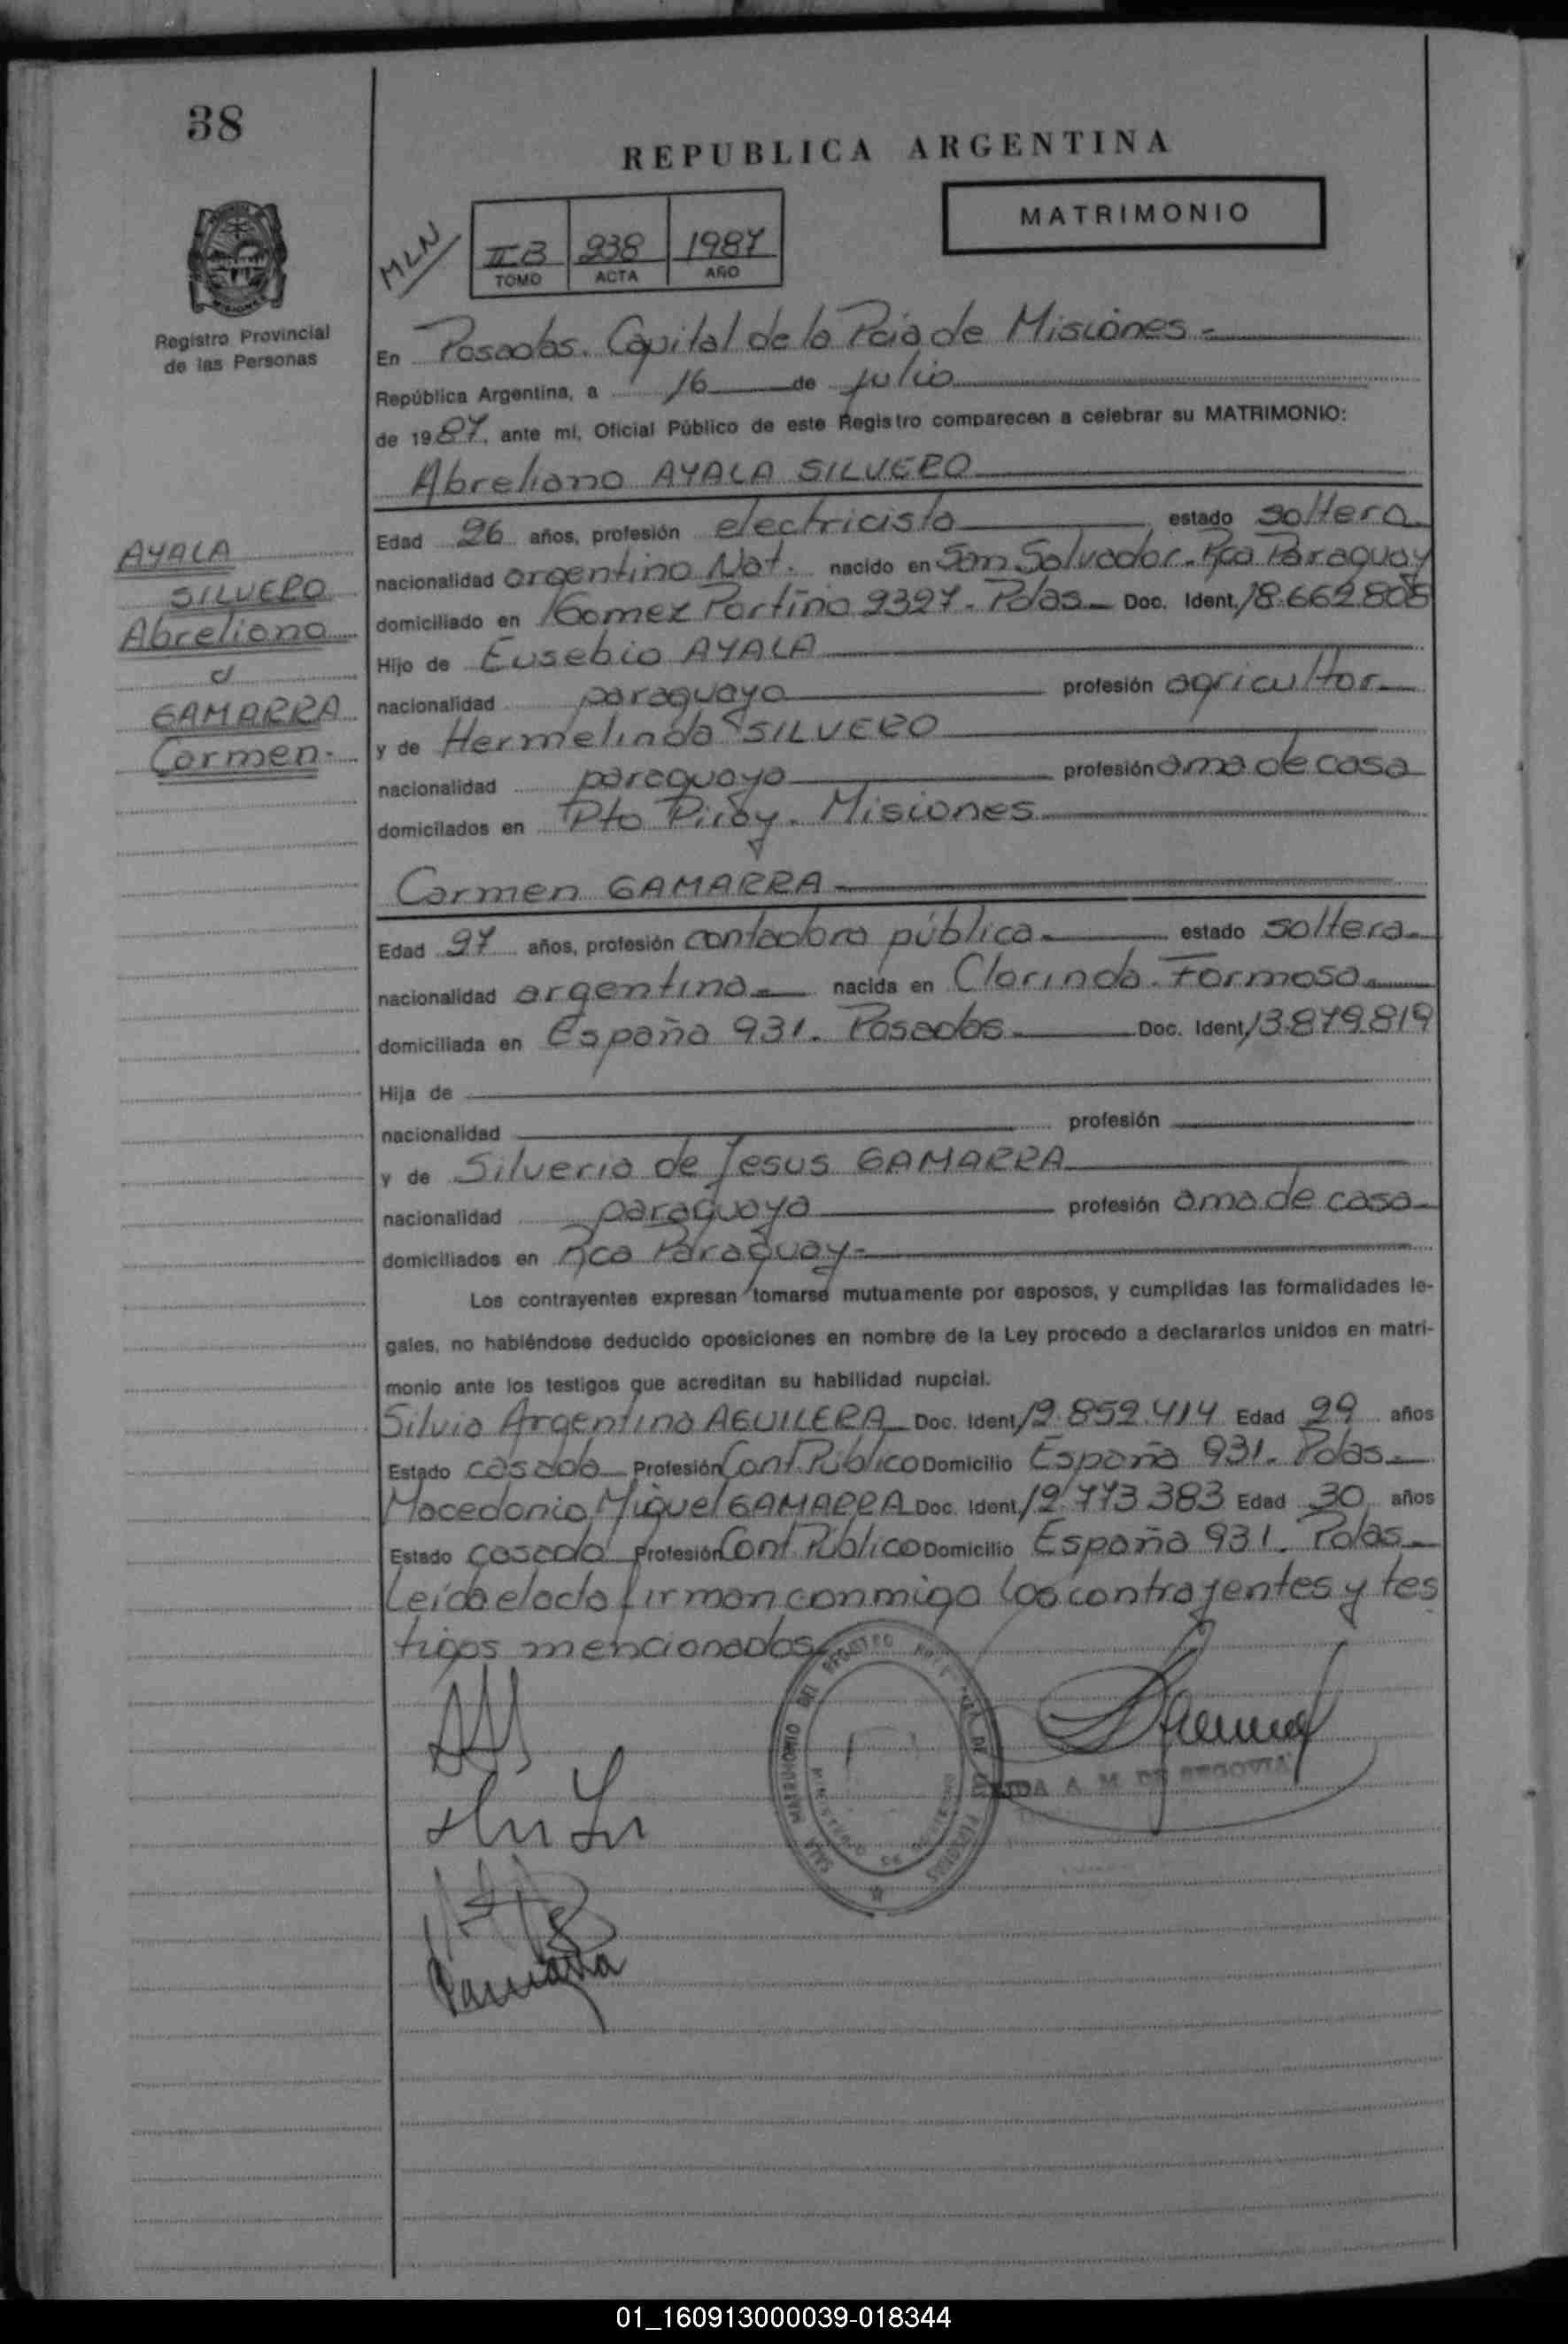 38
REPUBLICA ARGENTINA
MATRIMONIO
MLN
II B 238 1987
TOMO ACTA AÑO
Registro Provincial
de las Personas
En Posadas. Capital de la Pcia de Misiones.-
República Argentina, a 16 de julio
de 1987, ante mí, Oficial Público de este Registro comparecen a celebrar su MATRIMONIO:
Abreliano AYALA SILVERO
Edad 26 años, profesión electricista estado soltero
nacionalidad argentino Nat. nacido en San Salvador. Rca Paraguay
domiciliado en Gomez Portino 2327. Pdas Doc. Ident. 18.662.808
Hijo de Eusebio AYALA
nacionalidad paraguaya profesión agricultor
y de Hermelinda SILVERO
nacionalidad paraguaya profesión ama de casa
domicilados en Pto Piray. Misiones
AYALA
SILVERO
Abreliano
c/
GAMARRA
Carmen.
Carmen GAMARRA
Edad 27 años, profesión contadora pública estado soltera
nacionalidad argentina nacida en Clorinda. Formosa
domiciliada en España 931. Posadas Doc. Ident. 13.879.819
Hija de
nacionalidad profesión
y de Silveria de Jesus GAMARRA
nacionalidad paraguaya profesión ama de casa
domiciliados en Rca Paraguay
Los contrayentes expresan tomarse mutuamente por esposos, y cumplidas las formalidades le-
gales, no habiéndose deducido oposiciones en nombre de la Ley procedo a declararlos unidos en matri-
monio ante los testigos que acreditan su habilidad nupcial.
Silvio Argentino AGUILERA Doc. Ident. 12.852.414 Edad 29 años
Estado casado Profesión Cont. Público Domicilio España 931. Pdas
Macedonio Miguel GAMARRA Doc. Ident. 12.773.383 Edad 30 años
Estado casado Profesión Cont. Público Domicilio España 931. Pdas
Leída el acta firman conmigo los contrayentes y tes
tigos mencionados
SALA MATRIMONIO DEL REGISTRO DE LAS PERSONAS
A. M. DE SEGOVIA
01_160913000039-018344